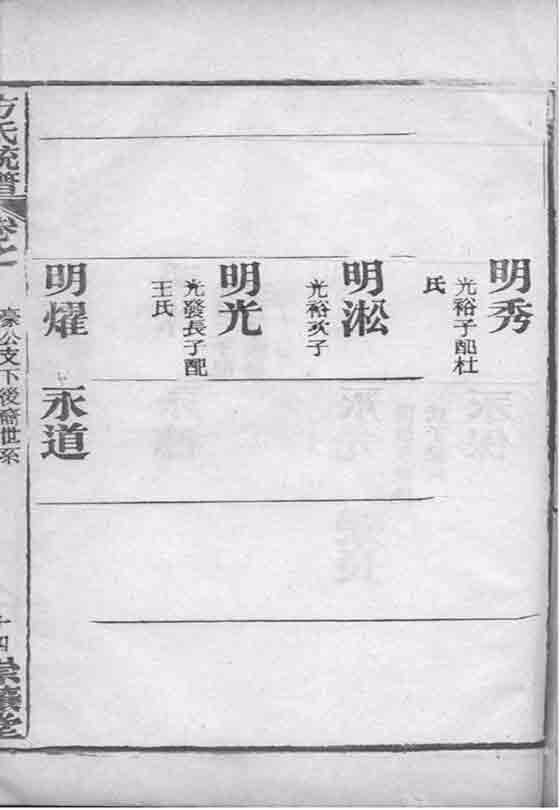 明秀
光裕子配杜
氏
明淞
光裕次子
明光
光發長子配
王氏
明燿
永道
方氏統譜
卷七
豪公支下後裔世系
十四
崇讓堂